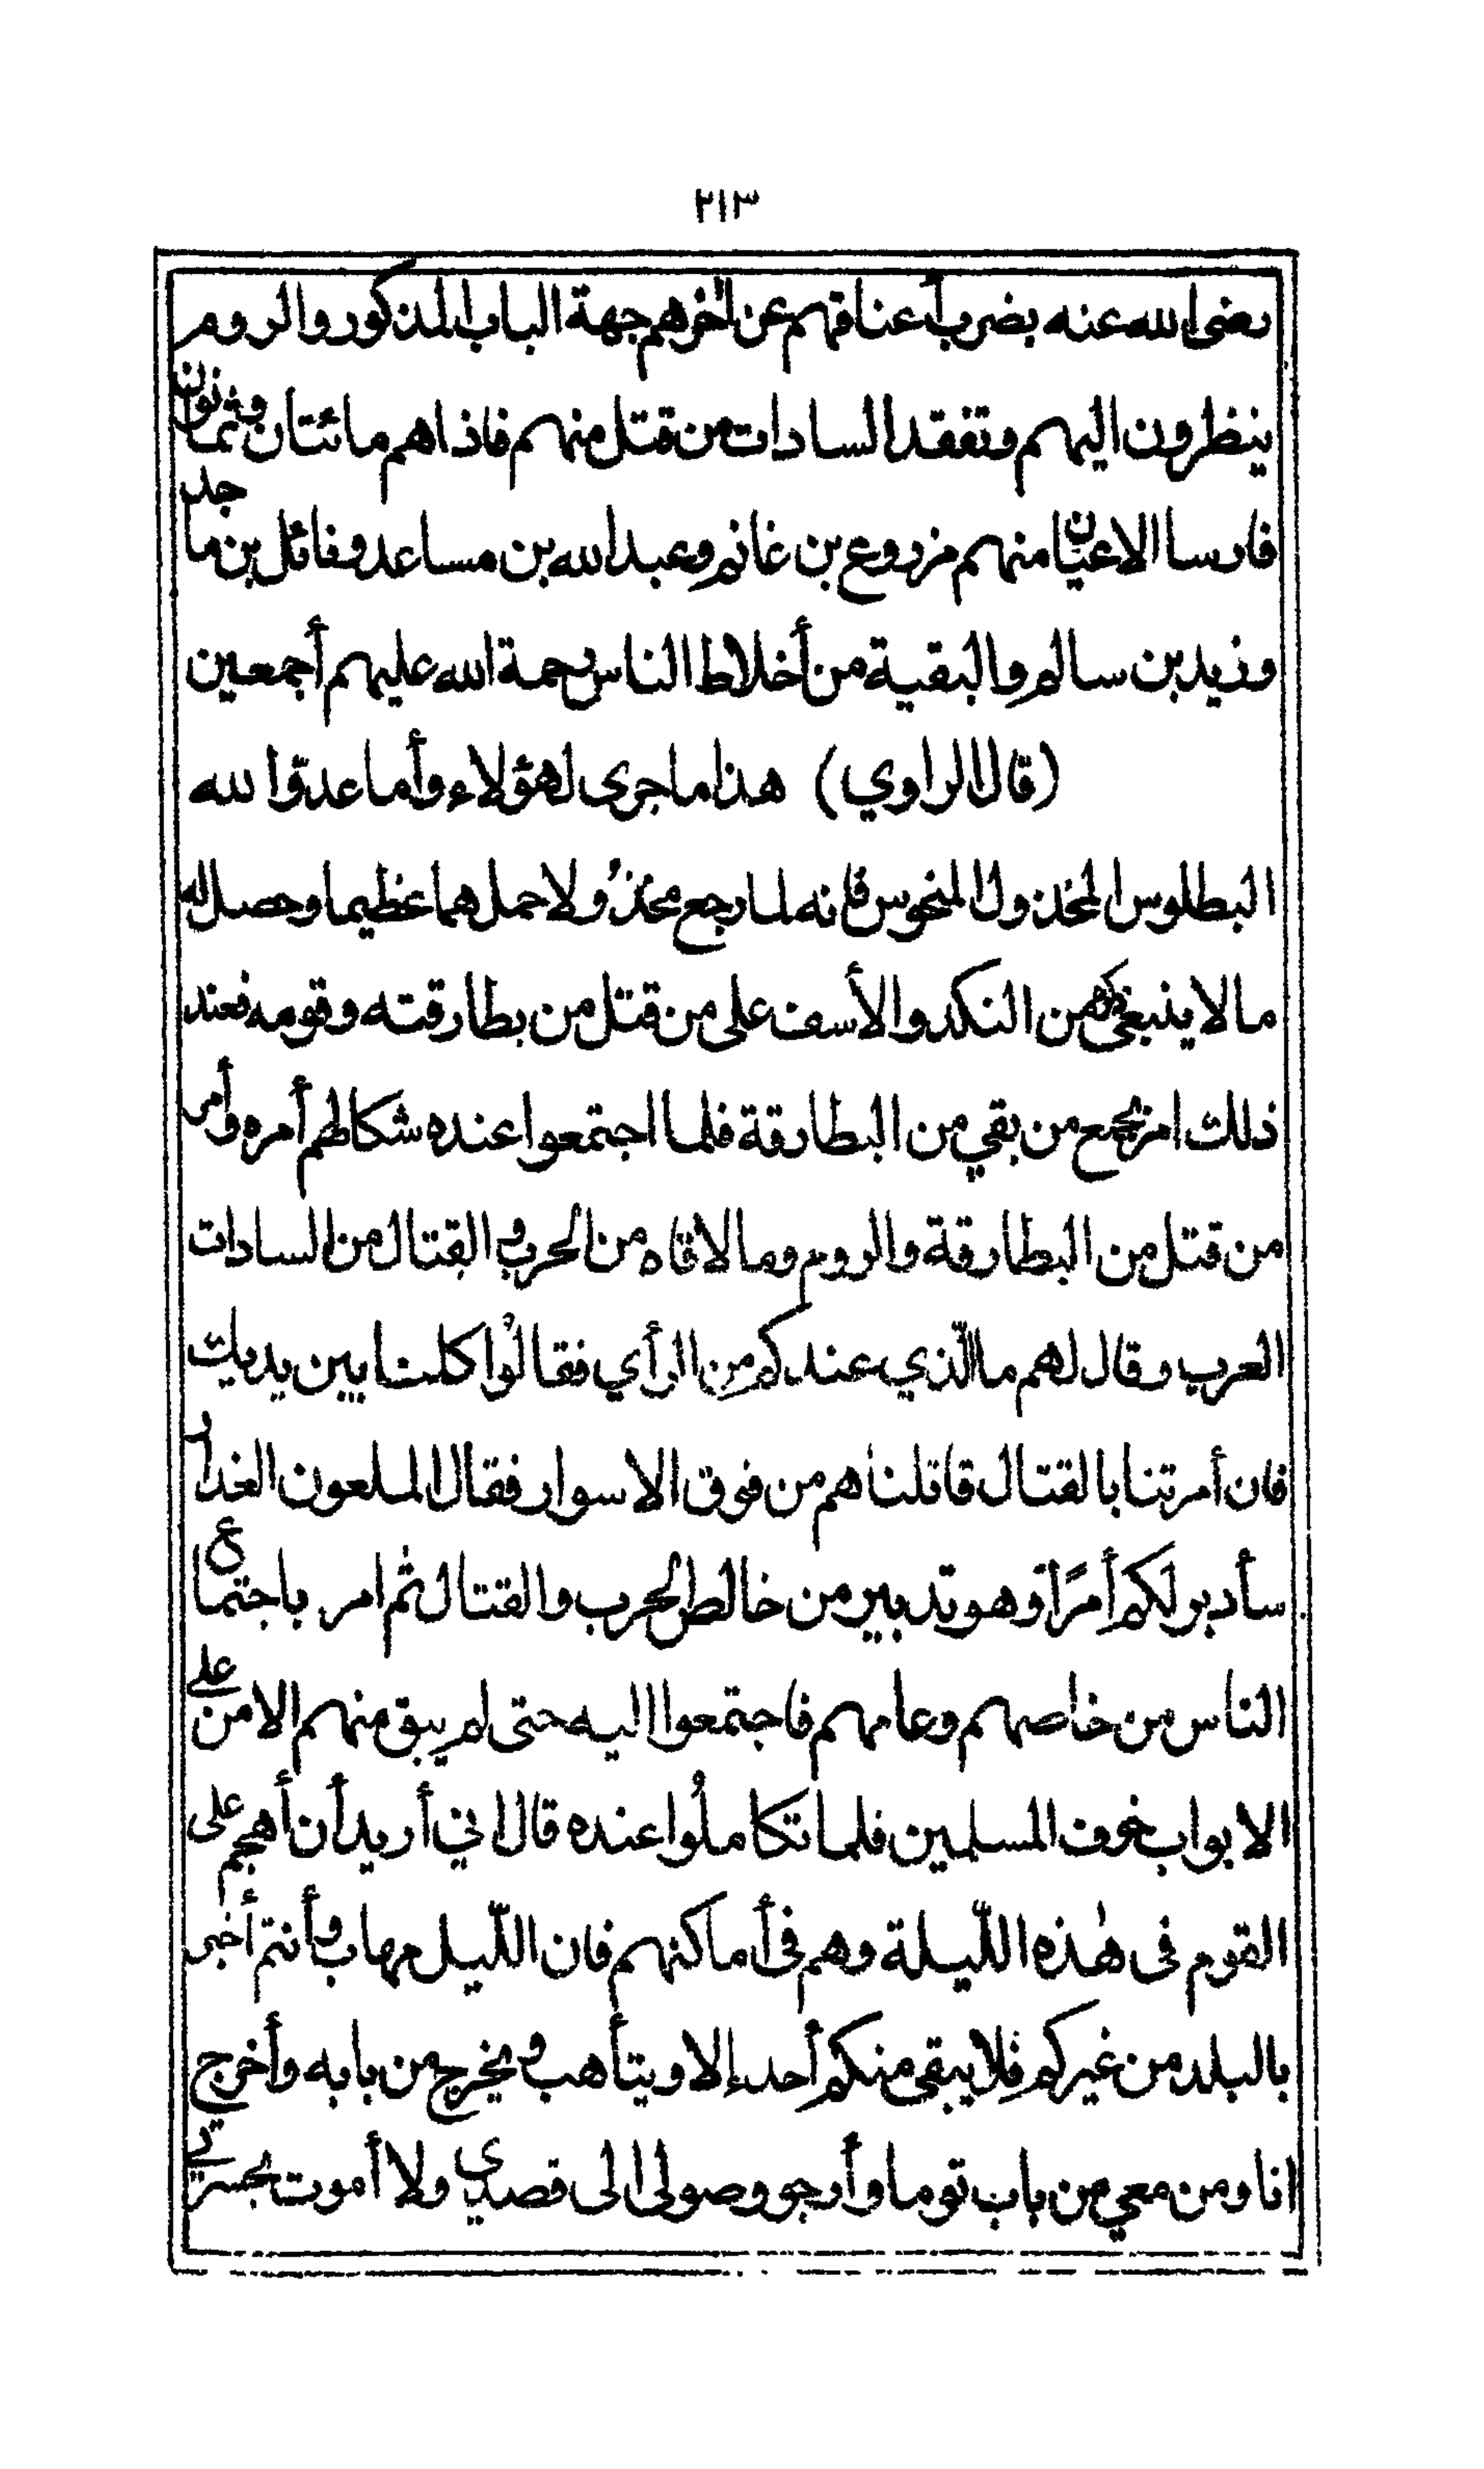 ٢١٣
رضي الله عنه بضرب أعناقهم عن آخرهم جهة الباب المذكور والروم
ينظرون اليهم وتفقد السادات من قتل منهم فاذاهم مائتان وثمانون
فارسا الاعيان منهم مزدوع بن غانم وعبد الله بن مساعد وفائل بن ماجد
وزيد بن سالم والبقية من أخلاط الناس رحمة الله عليهم أجمعين
(قال الراوي) هذا ماجرى لهؤلاء وأما عدوّ الله
البطلوس المخذول المنحوس فانه لما رجع مخذولا حمل هما عظيما وحصل له
مالا ينبغي ذكره من النكد والأسف على من قتل من بطارقته وقومه فعند
ذلك امر بجمع من بقي من البطارقة فلما اجتمعوا عنده شكا لهم أمره وأمر
من قتل من البطارقة والروم وما لاقاه من الحرب والقتال من السادات
العرب وقال لهم ما الّذي عندكم من الرأي فقالوا كلنا بين يديك
فان أمرتنا بالقتال قاتلناهم من فوق الاسوار فقال الملعون الغدار
سأدبر لكم أمرًا وهو تدبير من خالط الحرب والقتال ثم امر باجتماع
الناس من خاصهم وعامهم فاجتمعوا اليه حتى لم يبق منهم الا من على
الابواب خوف المسلمين فلما تكاملوا عنده قال اني أريد أن أهجم على
القوم فى هذه اللّيلة وهم فى أماكنهم فان اللّيل مهاب وأنتم أخبر
بالبلد من غيركم فلا يبقى منكم أحد إلا ويتأهب ويخرج من بابه وأخرج
انا ومن معي من باب توما وأرجو وصولى الى قصدي ولا أموت بحسرتي